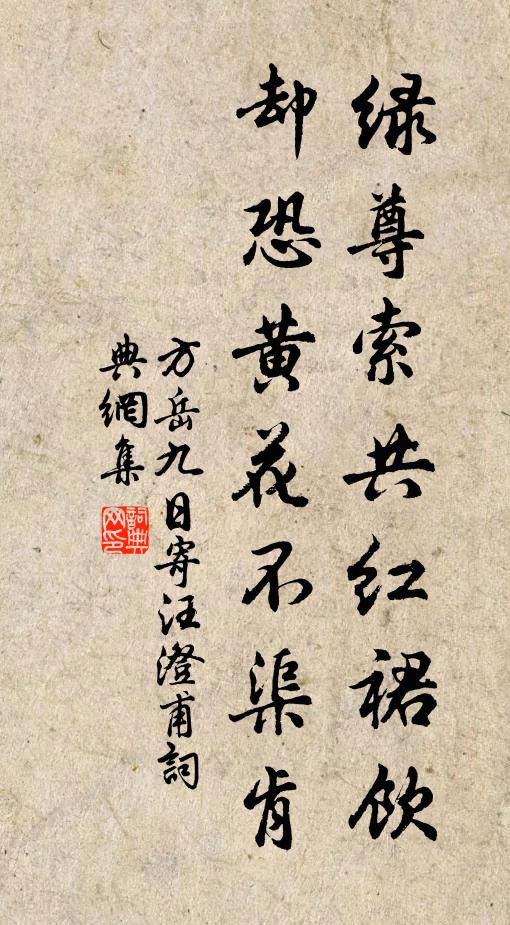 绿尊索共红裙饮
却恐黄花不渠肯
方岳九日寄汪澄甫詞
典網集
詞典网印